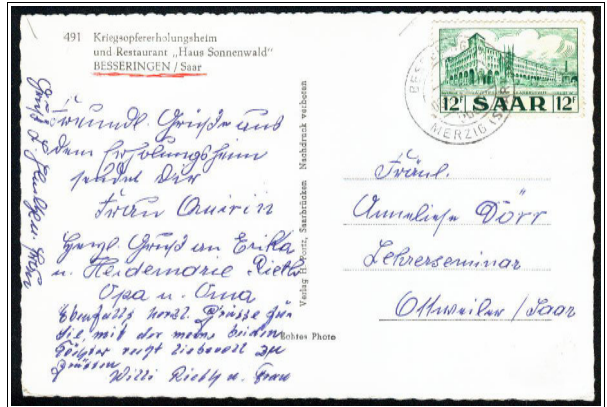 491 Kriegsopfererholungsheim
und Restaurant „Haus Sonnenwald"
BESSERINGEN / Saar
12F SAAR 12F
MERZIG (SAAR)
Freundl. Grüße aus
dem Erholungsheim
sendet Dir
Frau Quirin
Herzl. Gruß an Erika
u. Heidemarie Rieth
Opa u. Oma
Ebenfalls herzl. Grüsse für
Sie, mit der meine beiden
Töchter recht liebevoll zu
grüssen
Willi Rieth u. Frau
Gruß
Verlag H. Portz, Saarbrücken Nachdruck verboten
Echtes Photo
Fräul.
Anneliese Dörr
Lehrerseminar
Ottweiler / Saar